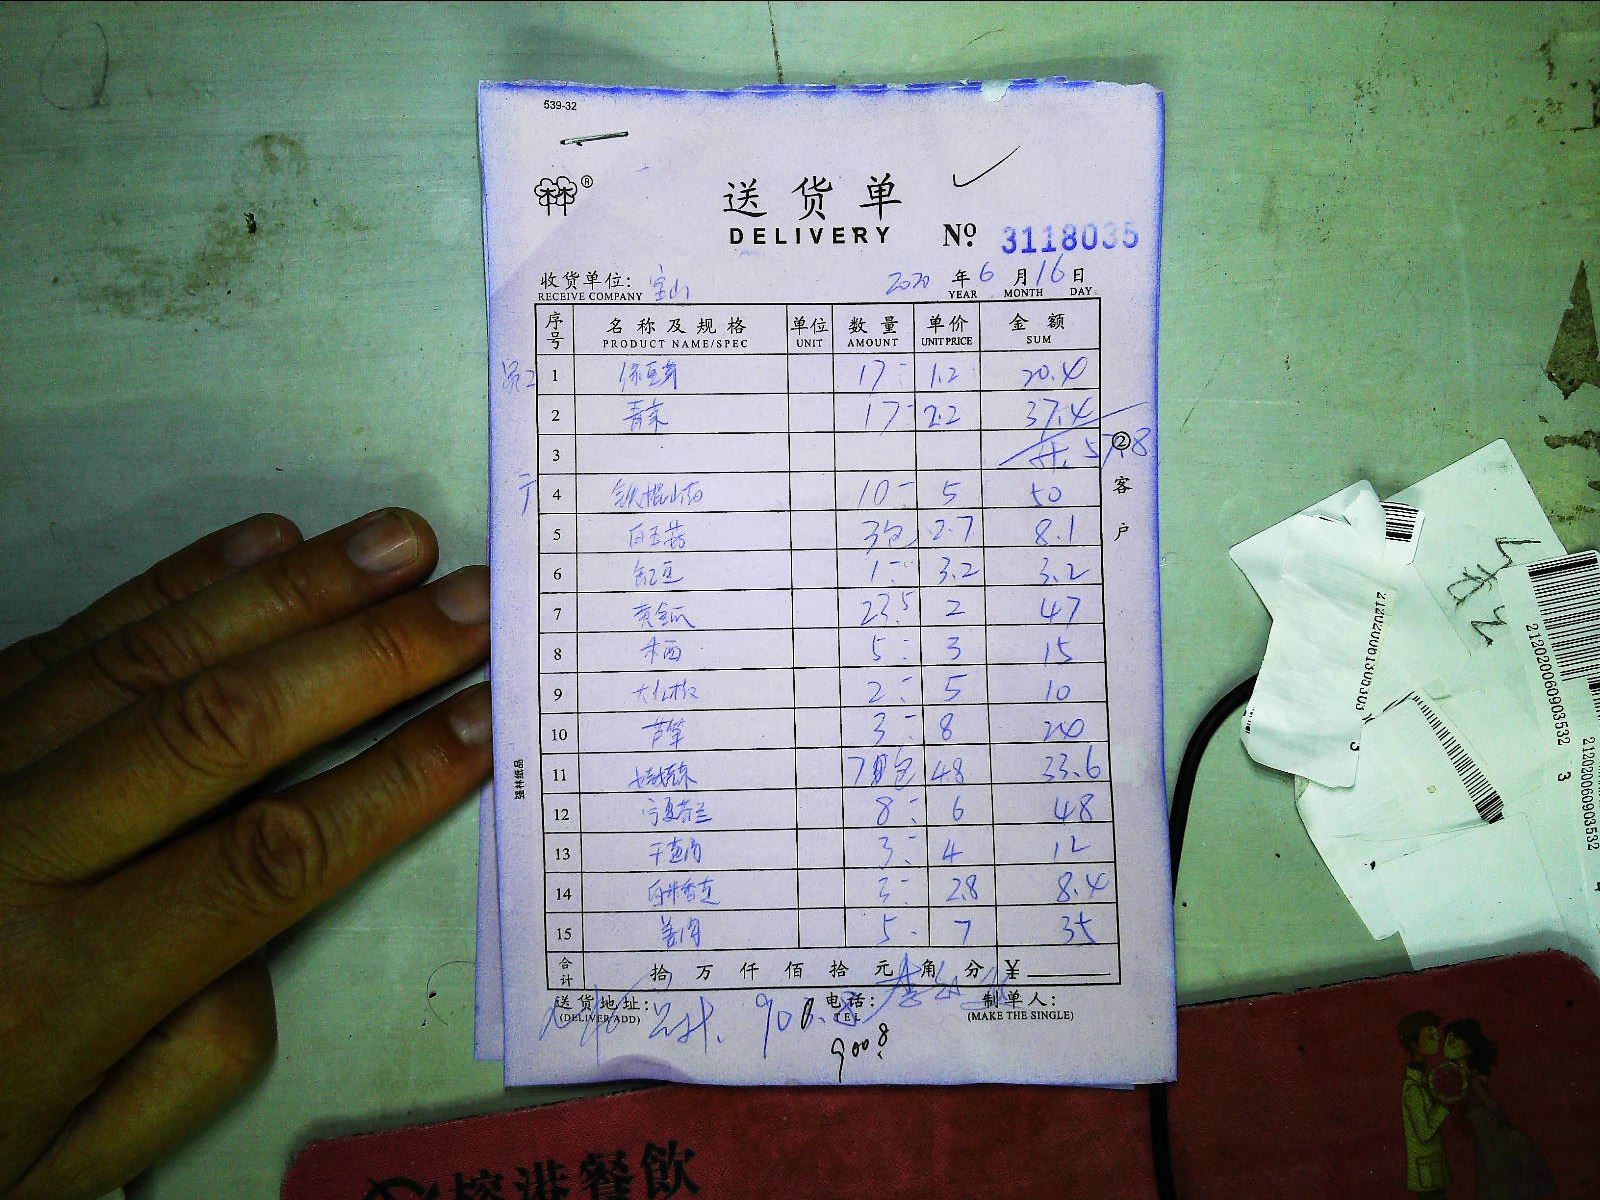 539-32
®
送货单
DELIVERY
№ 3118035
收货单位: 宝山 2020 年 6 月 16 日
RECEIVE COMPANY YEAR MONTH DAY
序号 名称及规格 单位 数量 单价 金额
PRODUCT NAME/SPEC UNIT AMOUNT UNIT PRICE SUM
员工 1 绿豆芽 17 1.2 20.4
2 青菜 17 2.2 37.4
3 计. 57.8
4 铁棍山药 10 5 50
5 白玉菇 3包 2.7 8.1
6 豇豆 1 3.2 3.2
7 黄金瓜 23.5 2 47
8 本西 5 3 15
9 2 5 10
10 芦笋 3 8 24
11 7包 4.8 33.6
12 宁夏芥兰 8 6 48
13 3 4 12
14 白米苋 3 2.8 8.4
15 姜肉 5 7 35
合计 拾 万 仟 佰 拾 元 角 分 ¥
送货地址: 电话: 制单人:
(DELIVER ADD) TEL (MAKE THE SINGLE)
900.8
②客户
强林纸品
212020060903532 3
212020060903532
餐飲